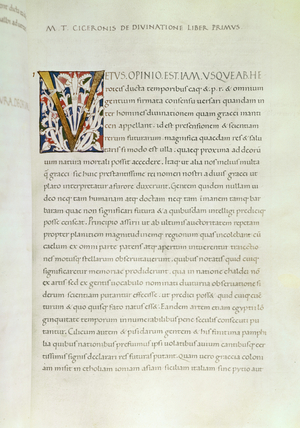 M. T. CICERONIS DE DIVINATIONE LIBER PRIMVS
VETVS OPINIO EST IAM VSQVE AB HE
roicis ducta temporibus eaq; & p. r. & omnium
gentium firmata consensu uersari quandam in
ter homines diuinationem quam graeci manti
cen appellant. id est presensionem & scientiam
rerum futurarum. magnifica quaedam res & salu
taris si modo est ulla. quaeq; proxima ad deorū
uim natura mortali possit accedere. Itaq; ut alia nos melius multa
q̄ graeci sic huic prestantissime rei nomen nostri a diuis graeci ut
plato interpretatur a furore duxerunt. Gentem quidem nullam ui
deo neq; tam humanam atq; doctam neq; tam imanem tamq; bar
baram quae non significari futura & a quibusdam intelligi predici q;
posse censeat. Principio assirii ut ab ultimis auctoritatem repetam
propter planetiem magnitudinemq; regionum quas incolebant cū
caelum ex omni parte patens atq; apertum intuerentur traiectio
nes motusq; stellarum obseruauerunt. quibus notatis quid cuiq;
significaretur memoriae prodiderunt. qua in natione chaldei nō
ex artis sed ex gentis uocabulo nominati diuturna obseruatione si
derum scientiam putantur effecisse. ut predici posset quid cuiq; euen
turum & quo quisq; fato natus esset. Eandem artem etiam egyptii lō
ginquitate temporum innumerabilibus pene seculis consecuti pu
tantur. Cilicum autem & pisidarum gentem & his finitima pamphi
lia quibus nationibus prefuimus ipsi uolatibus auium cantibusq; cer
tissimis signis declarari res futuras putant. Quam uero graecia coloni
am misit in etholiam ioniam asiam siciliam italiam sine pythio aut